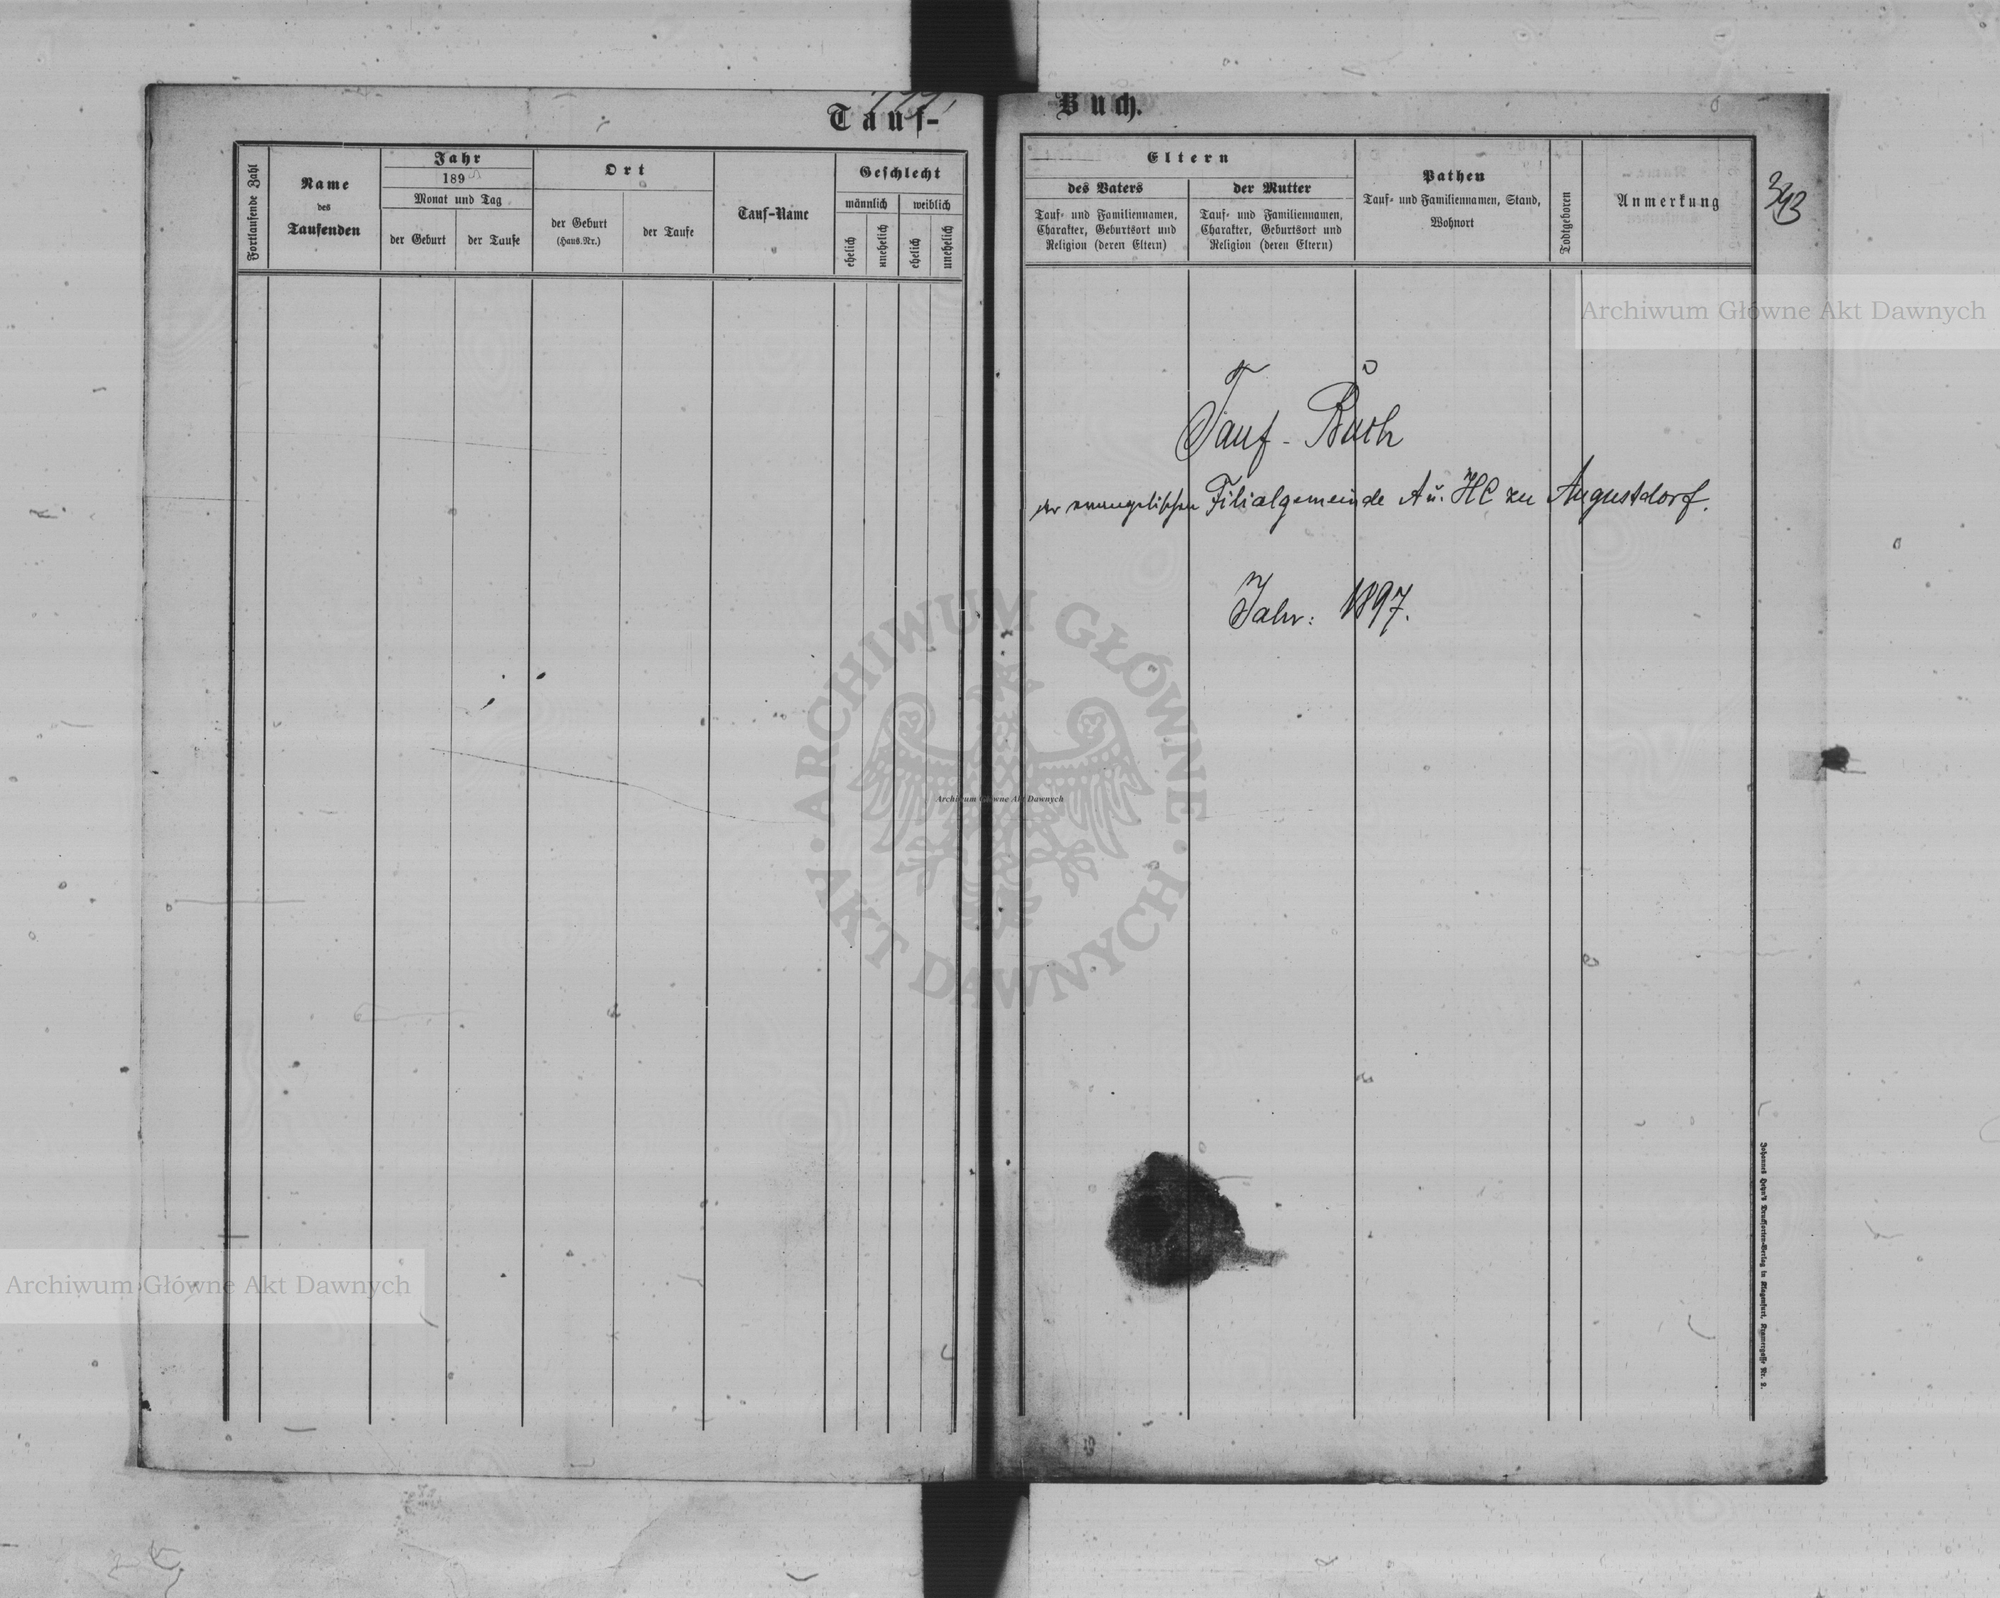 Tauf-
Fortlaufende Zahl
Name
des
Taufenden
Jahr
189
Monat und Tag
der Geburt
der Taufe
Ort
der Geburt
(Haus.Nr.)
der Taufe
Tauf-Name
Geschlecht
männlich
weiblich
ehelich
unehelich
ehelich
unehelich
Buch.
Eltern
des Vaters
Tauf- und Familiennamen,
Charakter, Geburtsort und
Religion (deren Eltern)
der Mutter
Tauf- und Familiennamen,
Charakter, Geburtsort und
Religion (deren Eltern)
Pathen
Tauf- und Familiennamen, Stand,
Wohnort
Todtgeboren
Anmerkung
Tauf-Buch
der evangelischen Filialgemeinde A u. HC zu Augustdorf.
Jahr: 1897.
Johannes Heyn's Drucksorten-Verlag in Klagenfurt, Kramergasse Nr. 2.
Archiwum Główne Akt Dawnych
ARCHIWUM GŁÓWNE
AKT DAWNYCH
Archiwum Główne Akt Dawnych
Archiwum Główne Akt Dawnych